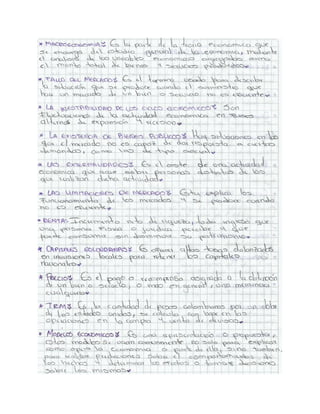 * MACROECONOMIA: Es la parte de la teoria economica que
se encarga del estudio general de la economia, mediante
el analisis de las variables economicas agregadas como
el monto total de bienes y servicios producidos.
* FALLO DEL MERCADO: Es el termino usado para describir
la situación que se produce cuando el suministro que
hace un mercado de un bien o servicio no es eficiente.
* LA INESTABILIDAD DE LOS CICLOS ECONOMICOS: Son
fluctuaciones de la actividad economica en fases
alternas de expansión y recesión.
* LA EXISTENCIA DE BIENES PUBLICOS: Hay situaciones en las
que el mercado no es capaz de dar respuesta a ciertas
demandas, como las de tipo social.
* LAS EXTERNALIDADES: Es el coste de una actividad
economica que recae sobre personas distintas de las
que realizan dicha actividad.
* LAS LIMITACIONES DE MERCADOS: Esta explica los
funcionamiento de los mercados y se produce cuando
no es eficiente.
* RENTA: Incremento neto de riqueza, todo ingreso que
una persona fisica o juridica percibe y que
puede consumir sin disminuir su patrimonio.
* CAPITALES GOLONDRINAS: Es ofrecer altas tasas dolarizadas
en inversiones locales para retener los capitales
nacionales.
* PRECIOS: Es el pago o recompensa asignado a la obtención
de un bien o servicio, o más en general, una mercancia
cualquiera.
* TRM: Es la cantidad de pesos colombianos por un dolar
de los estados unidos, se calcula con base en las
operaciones en la compra y venta de divisas.
* MODELOS ECONOMICOS: Es una representación o propuesta,
estos modelos se usan comunmente no solo para explicar
como opera la economia o parte de ella, sino tambien,
para realizar predicciones sobre el comportamiento de
los hechos y determinar los efectos o tomar decisiones
sobre los mismos.